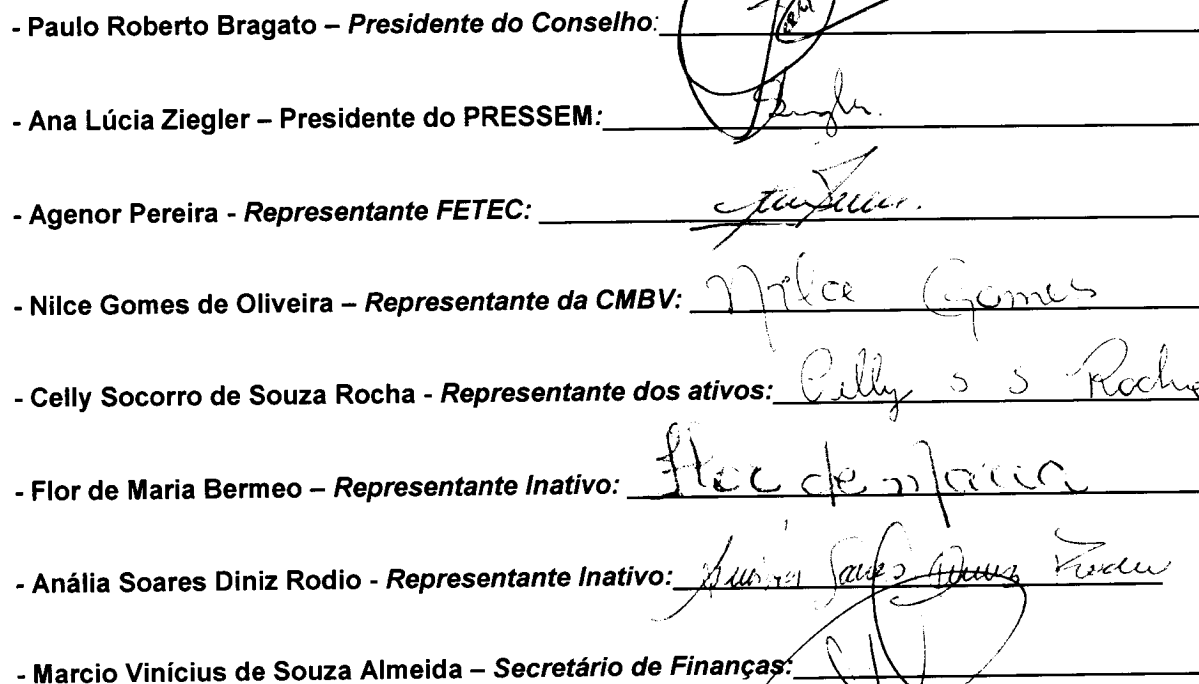 - Paulo Roberto Bragato – Presidente do Conselho:
- Ana Lúcia Ziegler – Presidente do PRESSEM:
- Agenor Pereira - Representante FETEC:
- Nilce Gomes de Oliveira – Representante da CMBV: Nilce Gomes
- Celly Socorro de Souza Rocha - Representante dos ativos: Celly S S Rocha
- Flor de Maria Bermeo – Representante Inativo: Flor de Maria
- Anália Soares Diniz Rodio - Representante Inativo:
- Marcio Vinícius de Souza Almeida – Secretário de Finanças: